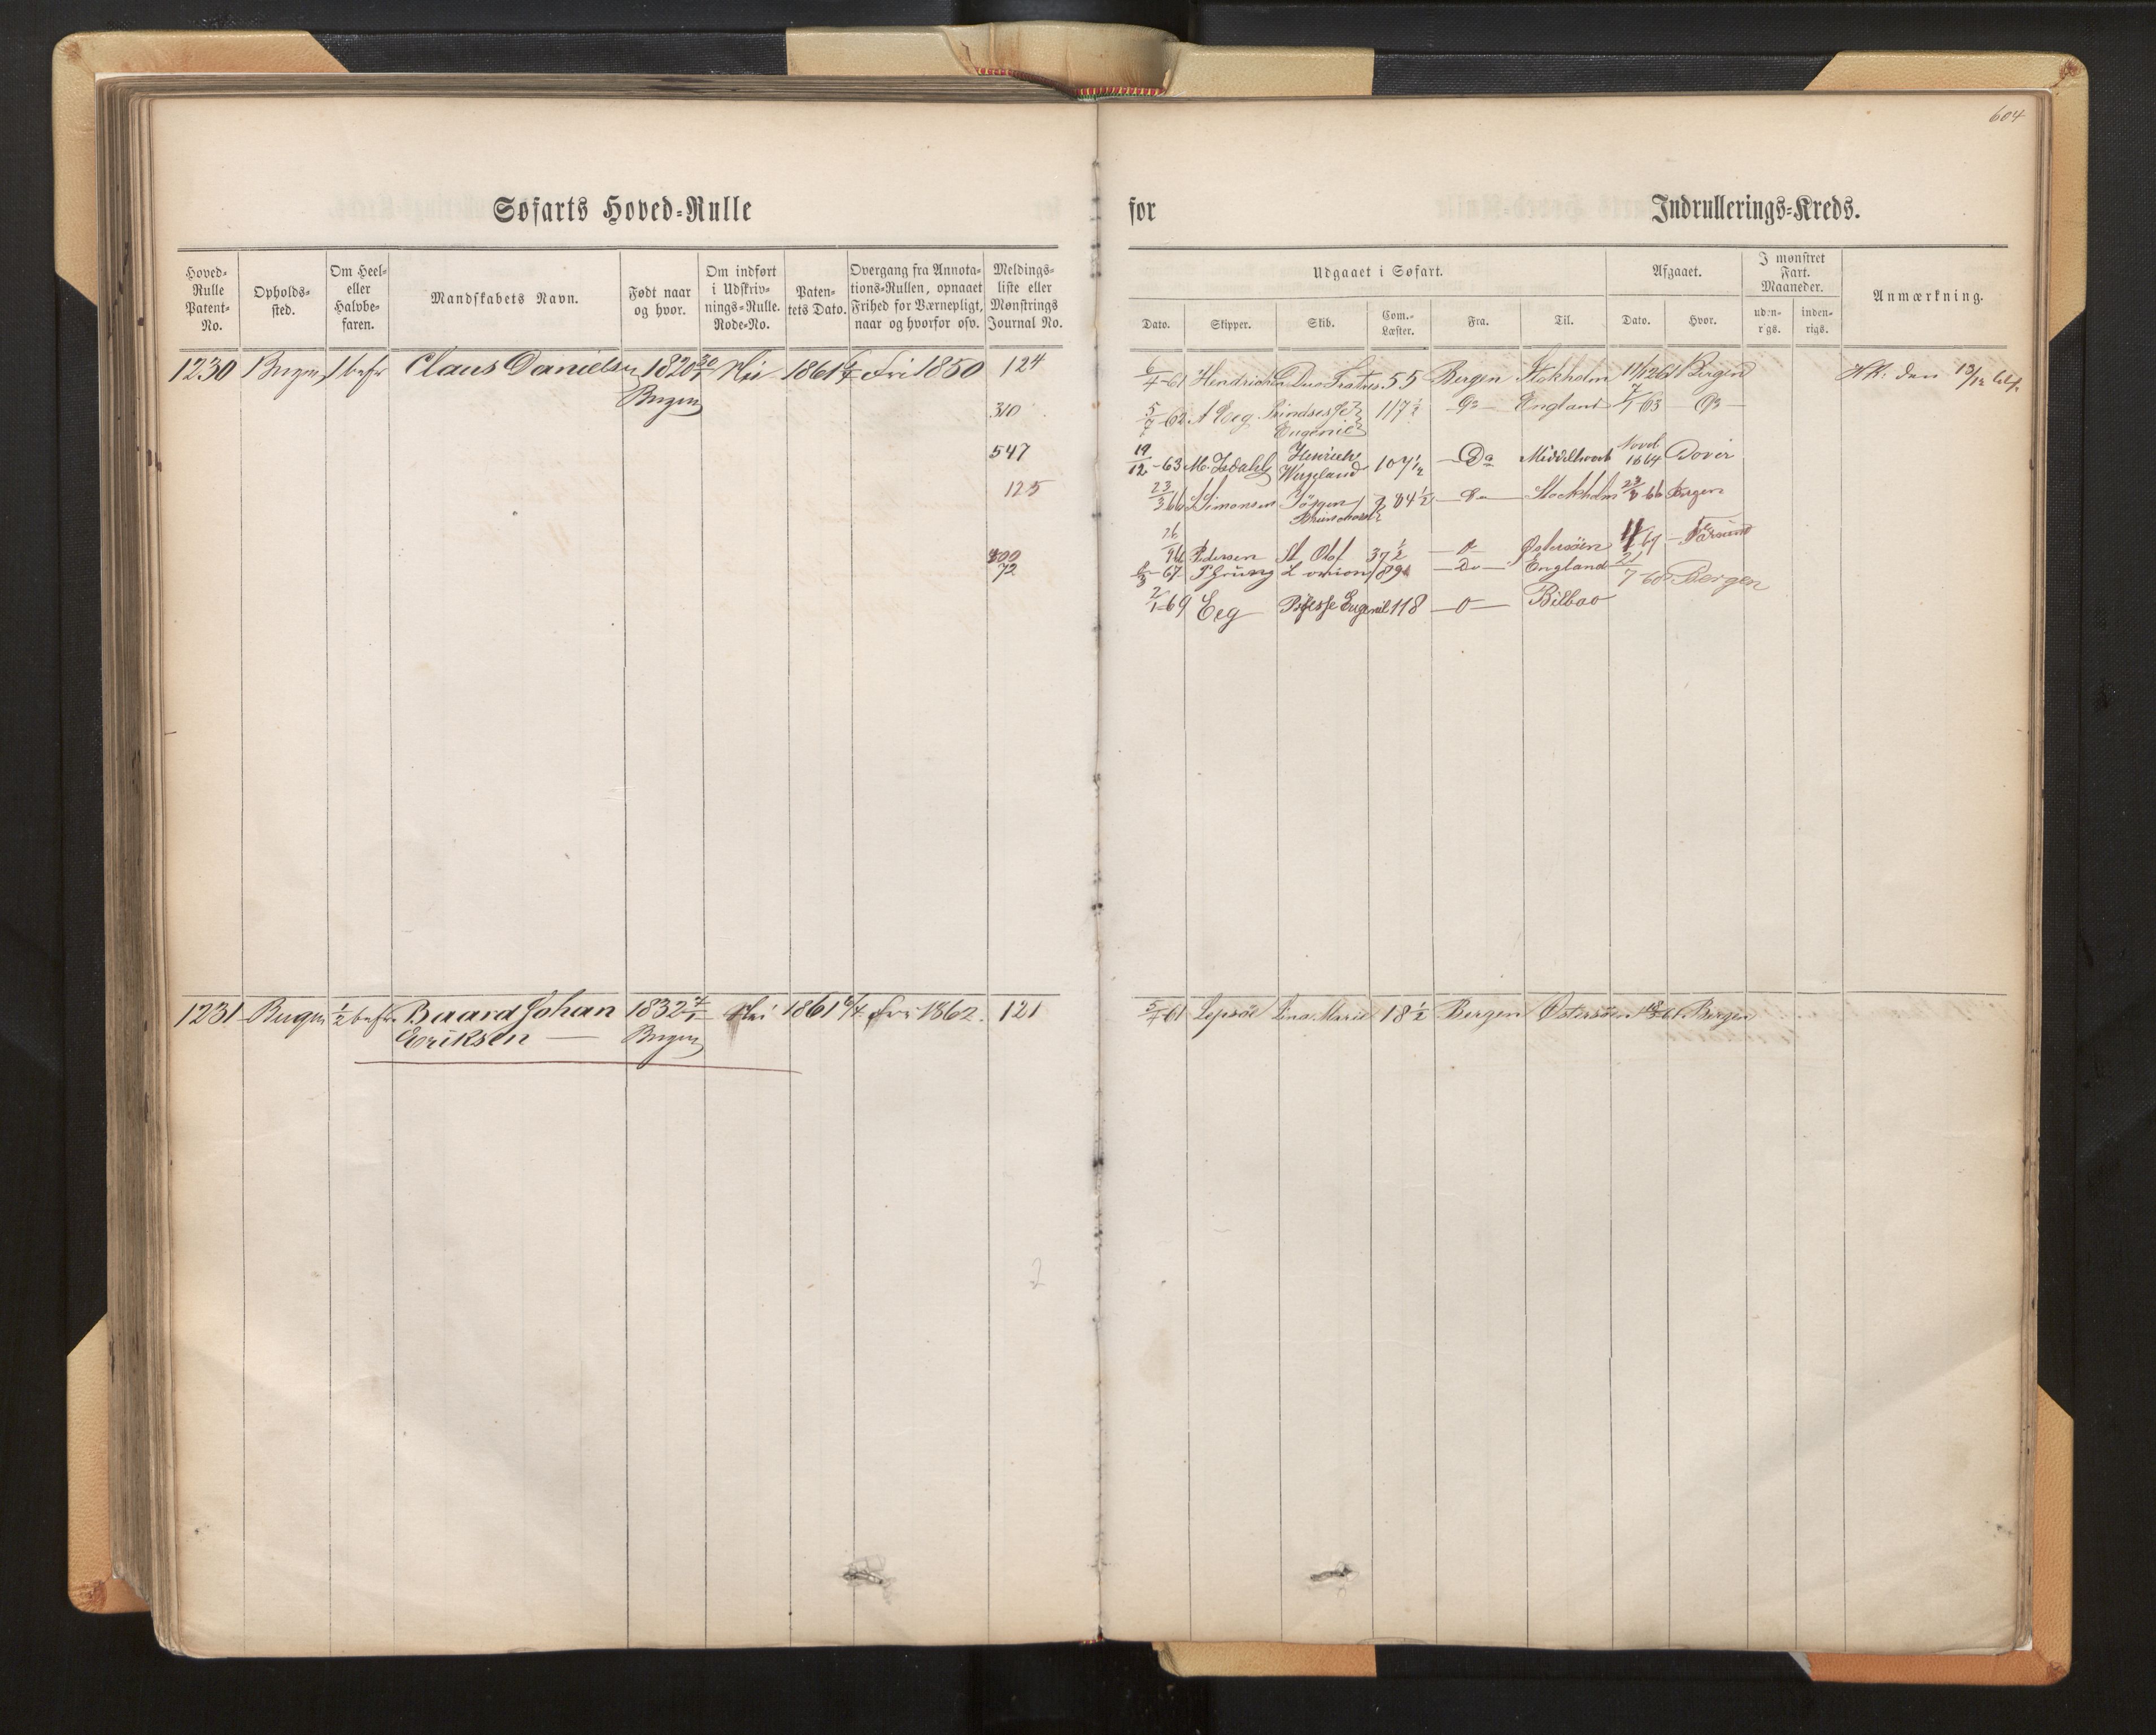 604
Søfarts Hoved-Rulle for Indrullerings-Kreds.
Hoved-Rulle Patent-No. Opholds-sted. Om Heel- eller Halvbe-faren. Mandskabets Navn. Født naar og hvor. Om indført i Udskriv-nings-Rulle. Rode-No. Paten-tets Dato. Overgang fra Annota-tions-Rullen, opnaaet Frihed for Værnepligt, naar og hvorfor osv. Meldings-liste eller Mønstrings Journal No.
Udgaaet i Søfart. Afgaaet. I mønstret Fart. Maaneder. Anmærkning.
Dato. Skipper. Skib. Com.-Læster. Fra. Til. Dato. Hvor. uden-rigs. inden-rigs.
1230 Bergen 1 befr Claus Danielsen 1820 30/1 Nei 1861 6/4 Fri 1850 124
Bergen
6/4-61 Hendriksen Duo Fratres 55 Bergen Stokholm 11/12 61 Bergen
310 5/7-62 A Eeg Prindsesse Eugenie 117 1/2 Do England 7/1 63 Do
547 19/12-63 M. Isdahl Henrich Wergeland 104 1/2 Da Middelhavet Novb 1864 Dover
125 23/3 66 Simonsen Jörgen 84 1/2 Do Stockholm 66 Bergen
400 Pedersen St Olaf 37 1/2 Østersöen 67 Farsund
72 67 P Grung 89 Do England 21/7-68 Bergen
2/1-69 Eeg Psesse Eugenie 118 Bilbao
1231 Bergen 1/2 befr. Baard Johan Eriksen 1832 4/1 Nei 1861 6/4 Fri 1862. 121
Bergen
5/4 61 Lepsöe Lina Marie 18 1/2 Bergen Østersöen 61 Bergen
2